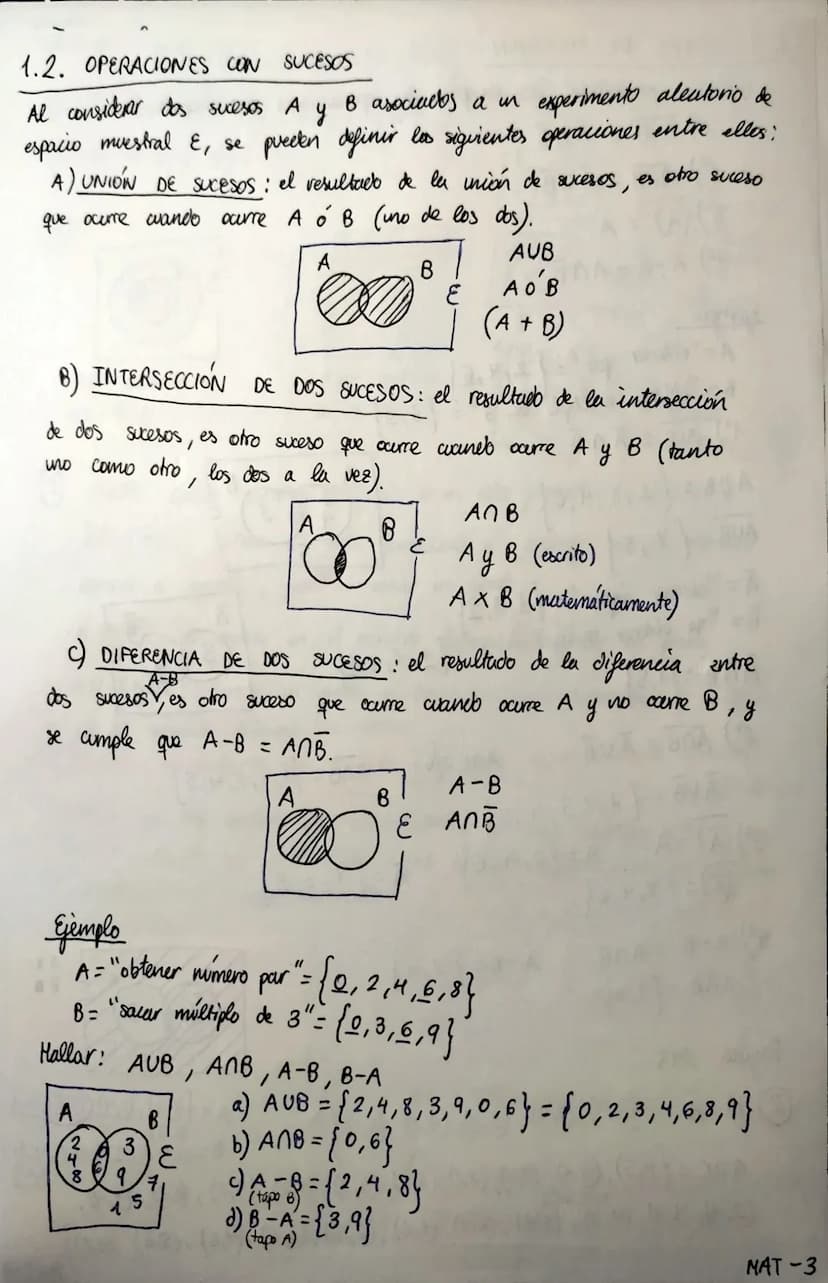 1.2. OPERACIONES CON SUCESOS
Al considerar dos sucesos A y B asociados a un experimento aleatorio de
espacio muestral E, se pueden definir las siguientes operaciones entre ellos:
A) UNIÓN DE SUCESOS: el resultado de la unión de sucesos, es otro suceso
que ocurre cuando ocurre A ó B (uno de los dos).
A B E
A∪B
A ó B
(A + B)
B) INTERSECCIÓN DE DOS SUCESOS: el resultado de la intersección
de dos sucesos, es otro suceso que ocurre cuando ocurre A y B (tanto
uno como otro, los dos a la vez).
A B E
A∩B
A y B (escrito)
A x B (matemáticamente)
C) DIFERENCIA DE DOS SUCESOS: el resultado de la diferencia entre
A-B
dos sucesos, es otro suceso que ocurre cuando ocurre A y no ocurre B, y
se cumple que A-B = A∩B̅.
A B E
A-B
A∩B̅
Ejemplo
A = "obtener número par" = {0, 2, 4, 6, 8}
B = "sacar múltiplo de 3" = {0, 3, 6, 9}
Hallar: A∪B, A∩B, A-B, B-A
A B E
2 4 8 0 6 3 9 7 1 5
a) A∪B = {2, 4, 8, 3, 9, 0, 6} = {0, 2, 3, 4, 6, 8, 9}
b) A∩B = {0, 6}
c) A-B = {2, 4, 8}
(tapo B)
d) B-A = {3, 9}
(tapo A)
MAT-3